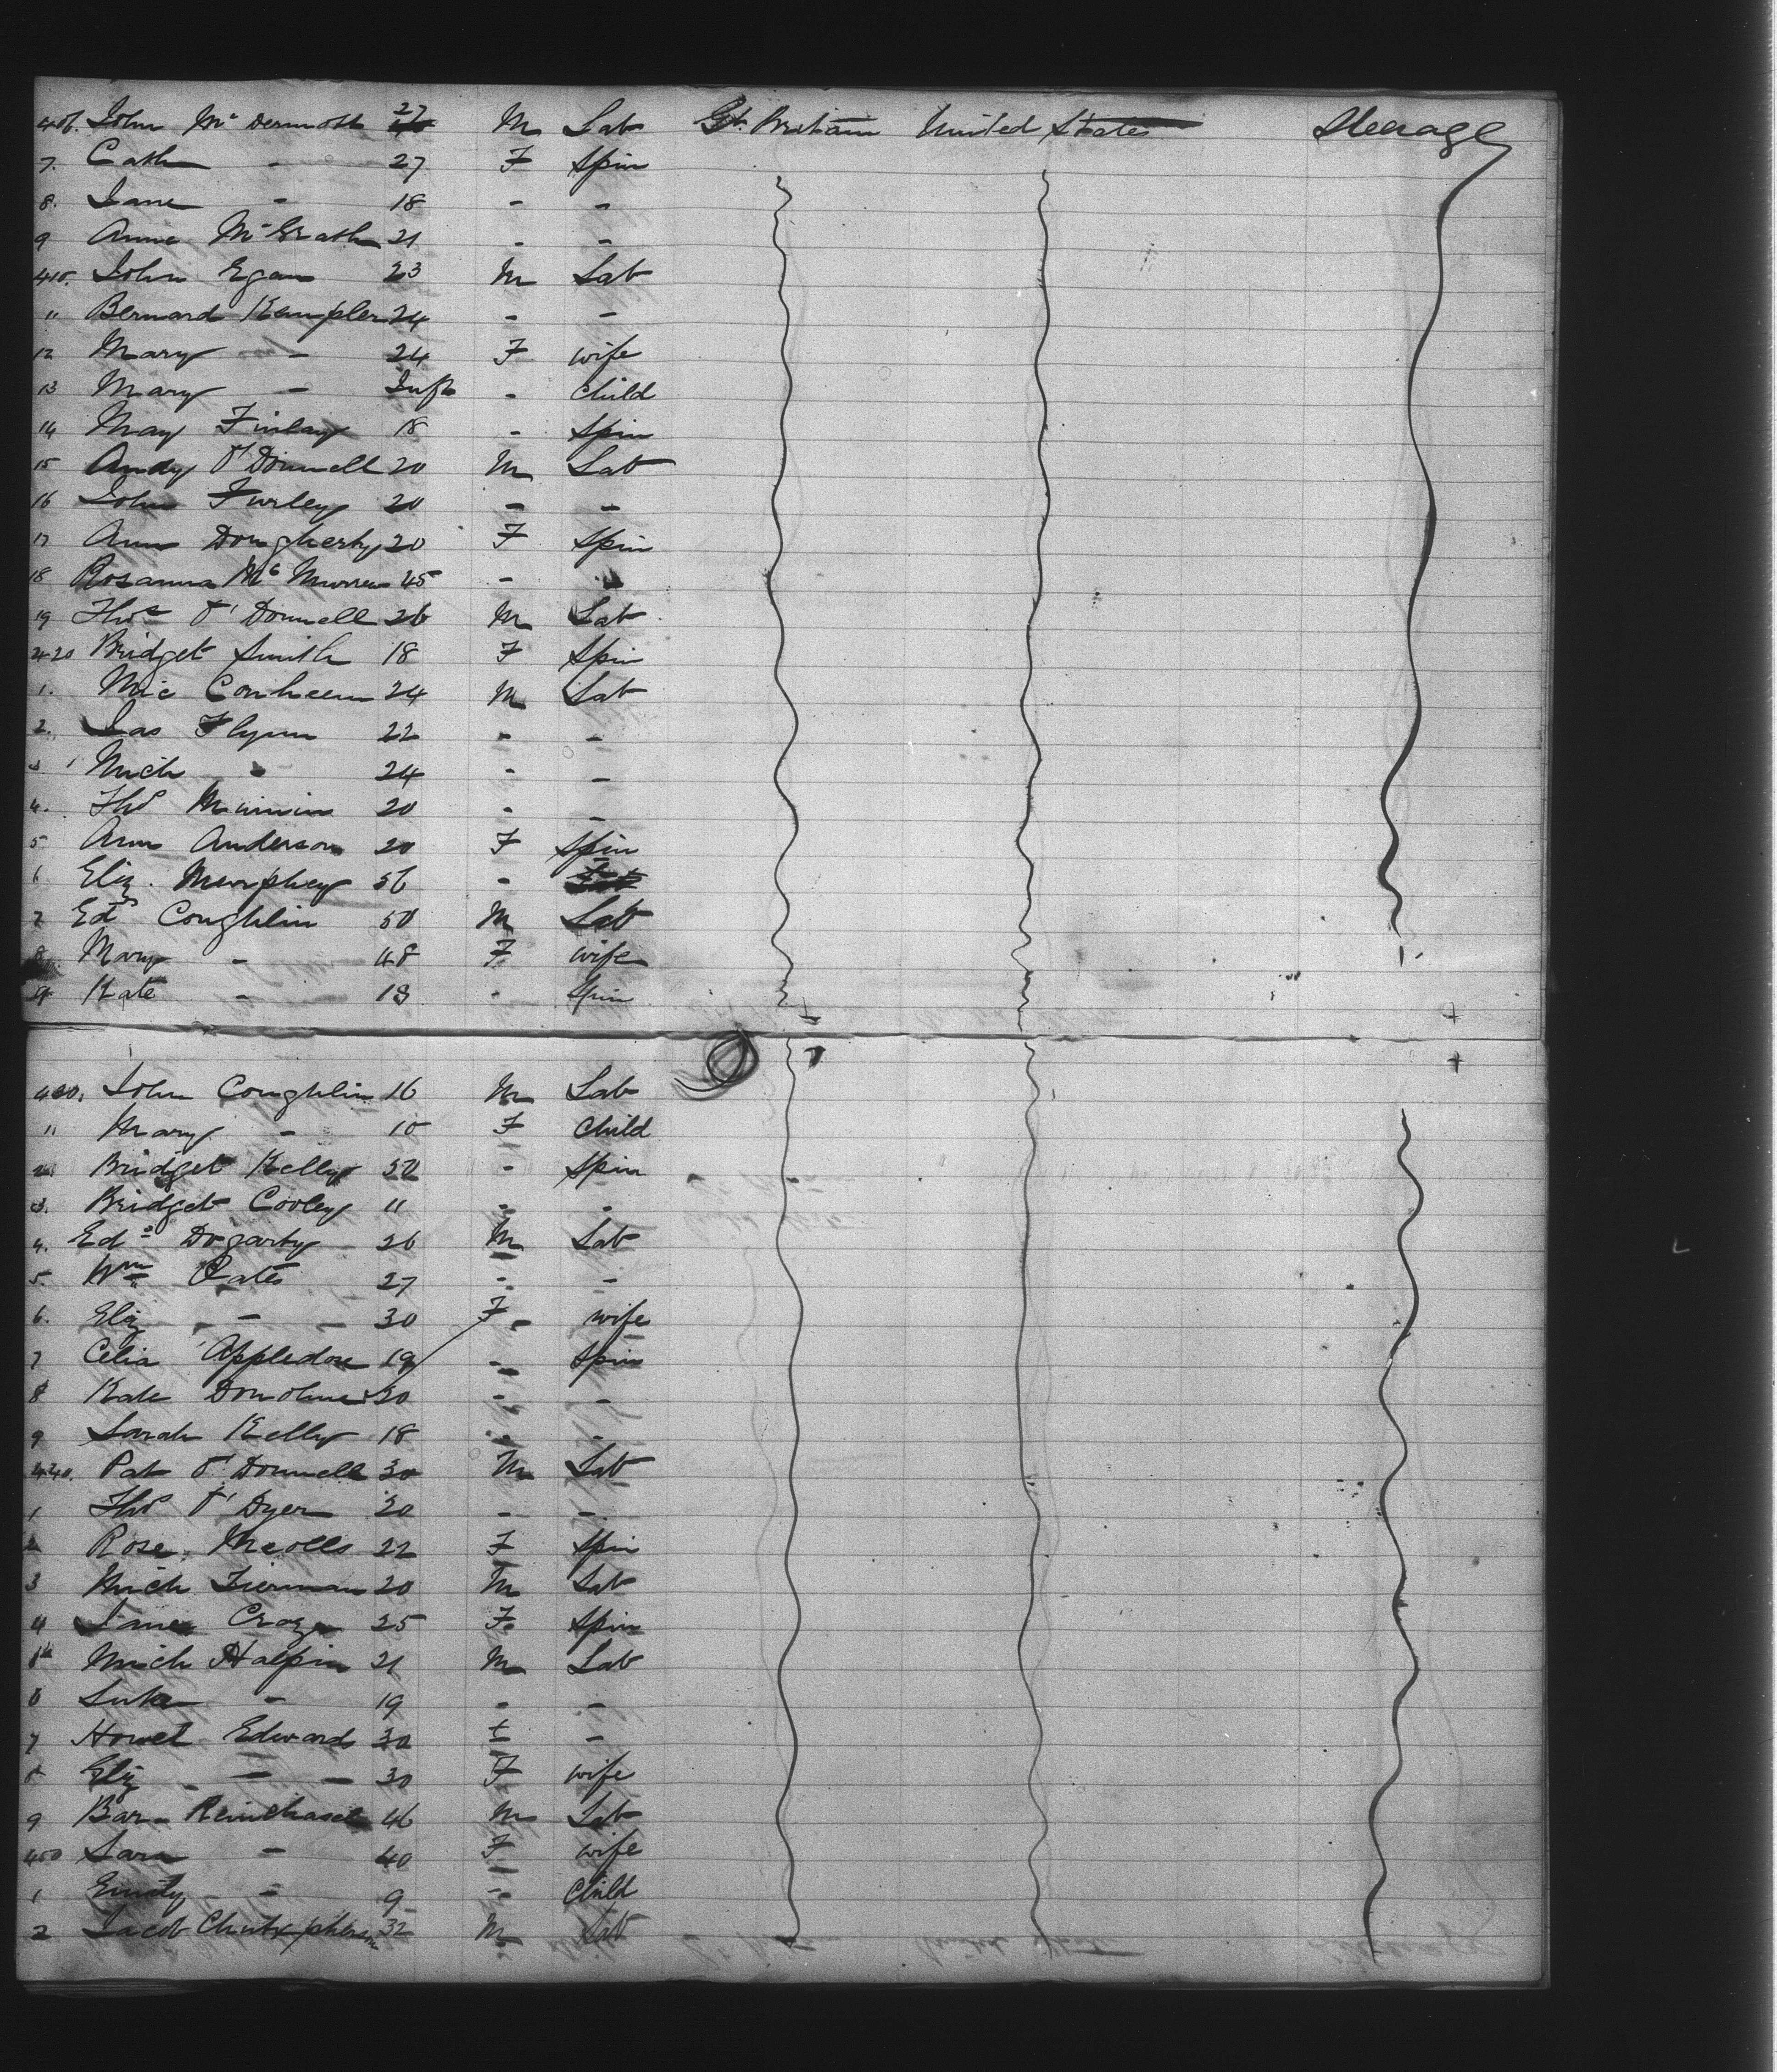 406. John McDermott 27 M Lab Gt. Britain United States Steerage
7. Cath - 27 F Spin
8. Jane - 18 - -
9 Annie McGrath 21 - -
410. John Egan 23 M Lab
" Bernard Kempler 24 - -
12 Mary - 24 F wife
13 Mary - Inft - Child
14 May Finlay 18 - Spin
15 Andy O'Donnell 20 M Lab
16 John Furley 20 - -
17 Ann Dougherty 20 F Spin
18 Rosanna Mc 45 -
19 Thos O'Donnell 26 M Lab
420 Bridget Smith 18 F Spin
1. Mic 24 M Lab
2. Jas Flynn 22 - -
3. Mich " 24 - -
4. Thos 20 - -
5 Ann Anderson 20 F Spin
6 Eliz. Murphey 56 -
7 Edd Coughlin 50 M Lab
8. Mary - 48 F wife
9 Kate - 18 - Spin
430. John Coughlin 16 M Lab
" Mary - 10 F Child
2. Bridget Kelly 50 - Spin
3. Bridget Cooley 11 - -
4. Edd Dogarty 26 M Lab
5. Wm Oates 27 - -
6. Eliz - 30 F wife
7 Celia Appledore 19 - Spin
8 Kate Donohue 20 - -
9 Sarah Kelly 18 - -
440. Pat O'Donnell 30 M Lab
1 Thos O'Dyer 20 - -
2 Rose 22 F Spin
3 Mich 20 M Lab
4 Jane 25 F Spin
5 Mich Halpin 21 M Lab
6 Luke - 19 - -
7 Howel Edwards 30 - -
8 Eliz - 30 F wife
9 Bar 46 M Lab
450 Sara - 40 F wife
1 - 9 - Child
2 Jacob 32 M Lab